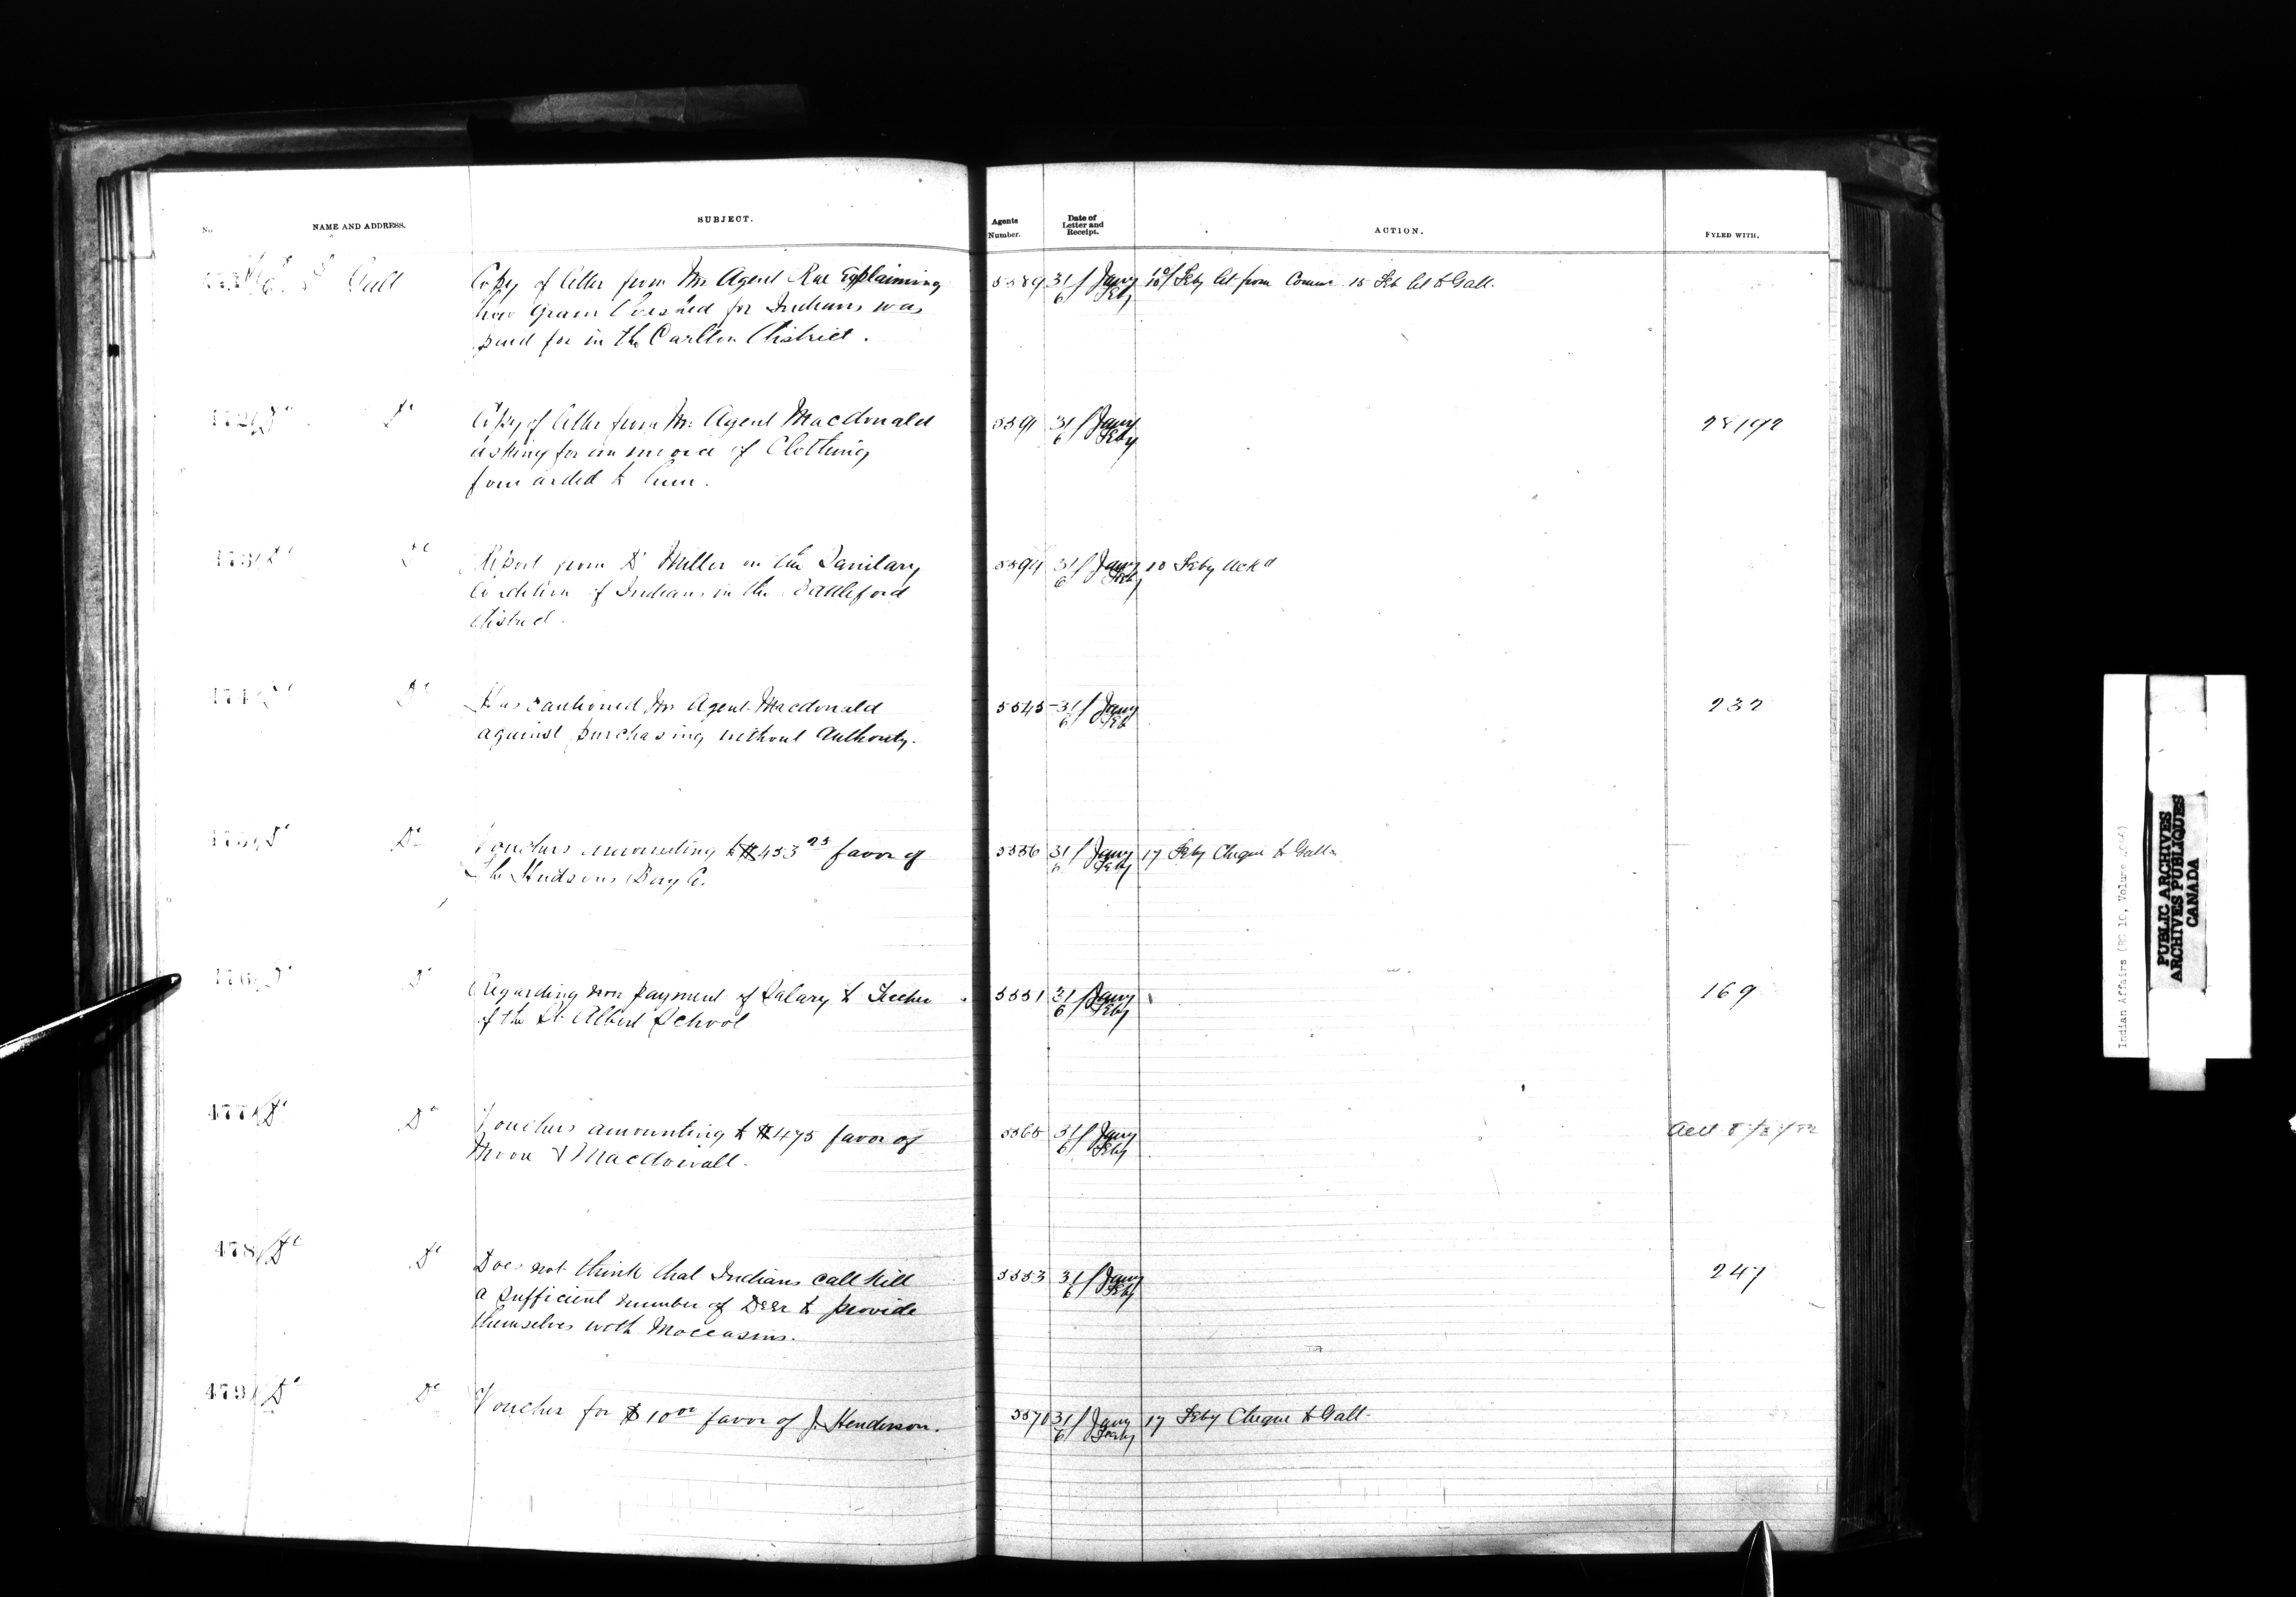 No. NAME AND ADDRESS. SUBJECT. Agents Number. Date of Letter and Receipt. ACTION. FYLED WITH.
Galt Copy of letter from Mr Agent Rae Explaining 5589 31/ Jany 10/ Feby let from Commr 15 Feb let to Galt.
how Grain threshed for Indians was 6/ Feby
paid for in the Carlton District.
472 Do Do Copy of letter from Mr Agent Macdonald 5591 31/ Jany 28192
asking for an invoice of Clothing 6/ Feby
forwarded to him.
473 Do Do Report from Dr Miller on the Sanitary 5594 31/ Jany 10 Feby Ackd
Condition of Indians in the Battleford 6/ Feby
District.
474 Do Do Has cautioned Mr Agent Macdonald 5545 31/ Jany 232
against purchasing without Authority. 6/ Feb
475 Do Do Vouchers amounting to $453 favor of 5556 31/ Jany 17 Feby Cheque to Galt
The Hudsons Bay Co. 6/ Feby
476 Do Do Regarding non payment of Salary to Teacher 5551 31/ Jany 169
of the St. Albert School 6/ Feby
477 Do Do Vouchers amounting to $475 favor of 5565 31/ Jany
Moore & Macdowall. 6/ Feby
478 Do Do Does not think that Indians call kill 5553 31/ Jany 247
a sufficient number of Deer to provide 6/ Feby
themselves with Moccasins.
479 Do Do Voucher for $10 00 favor of J. Henderson. 5570 31/ Jany 17 Feby Cheque to Galt.
6/ Feby
Indian Affairs (RG 10, Volume
PUBLIC ARCHIVES
ARCHIVES PUBLIQUES
CANADA